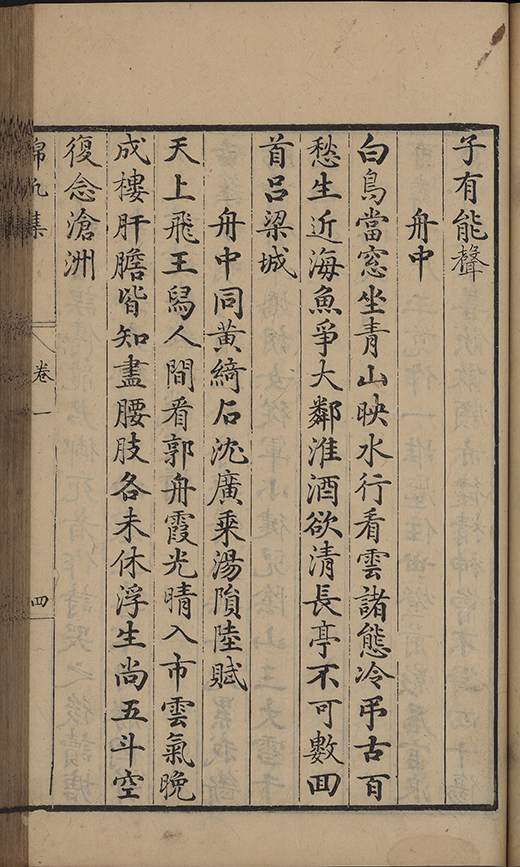 子有能聲
舟中
白鳥當窓坐青山映水行看雲諸態冷弔古百
愁生近海魚爭大鄰淮酒欲清長亭不可數回
首呂梁城
舟中同黃綺石沈廣乘湯隕陸賦
天上飛王舄人間看郭舟霞光晴入市雲氣晚
成樓肝膽皆知盡腰肢各未休浮生尚五斗空
復念滄洲
集
卷一
四